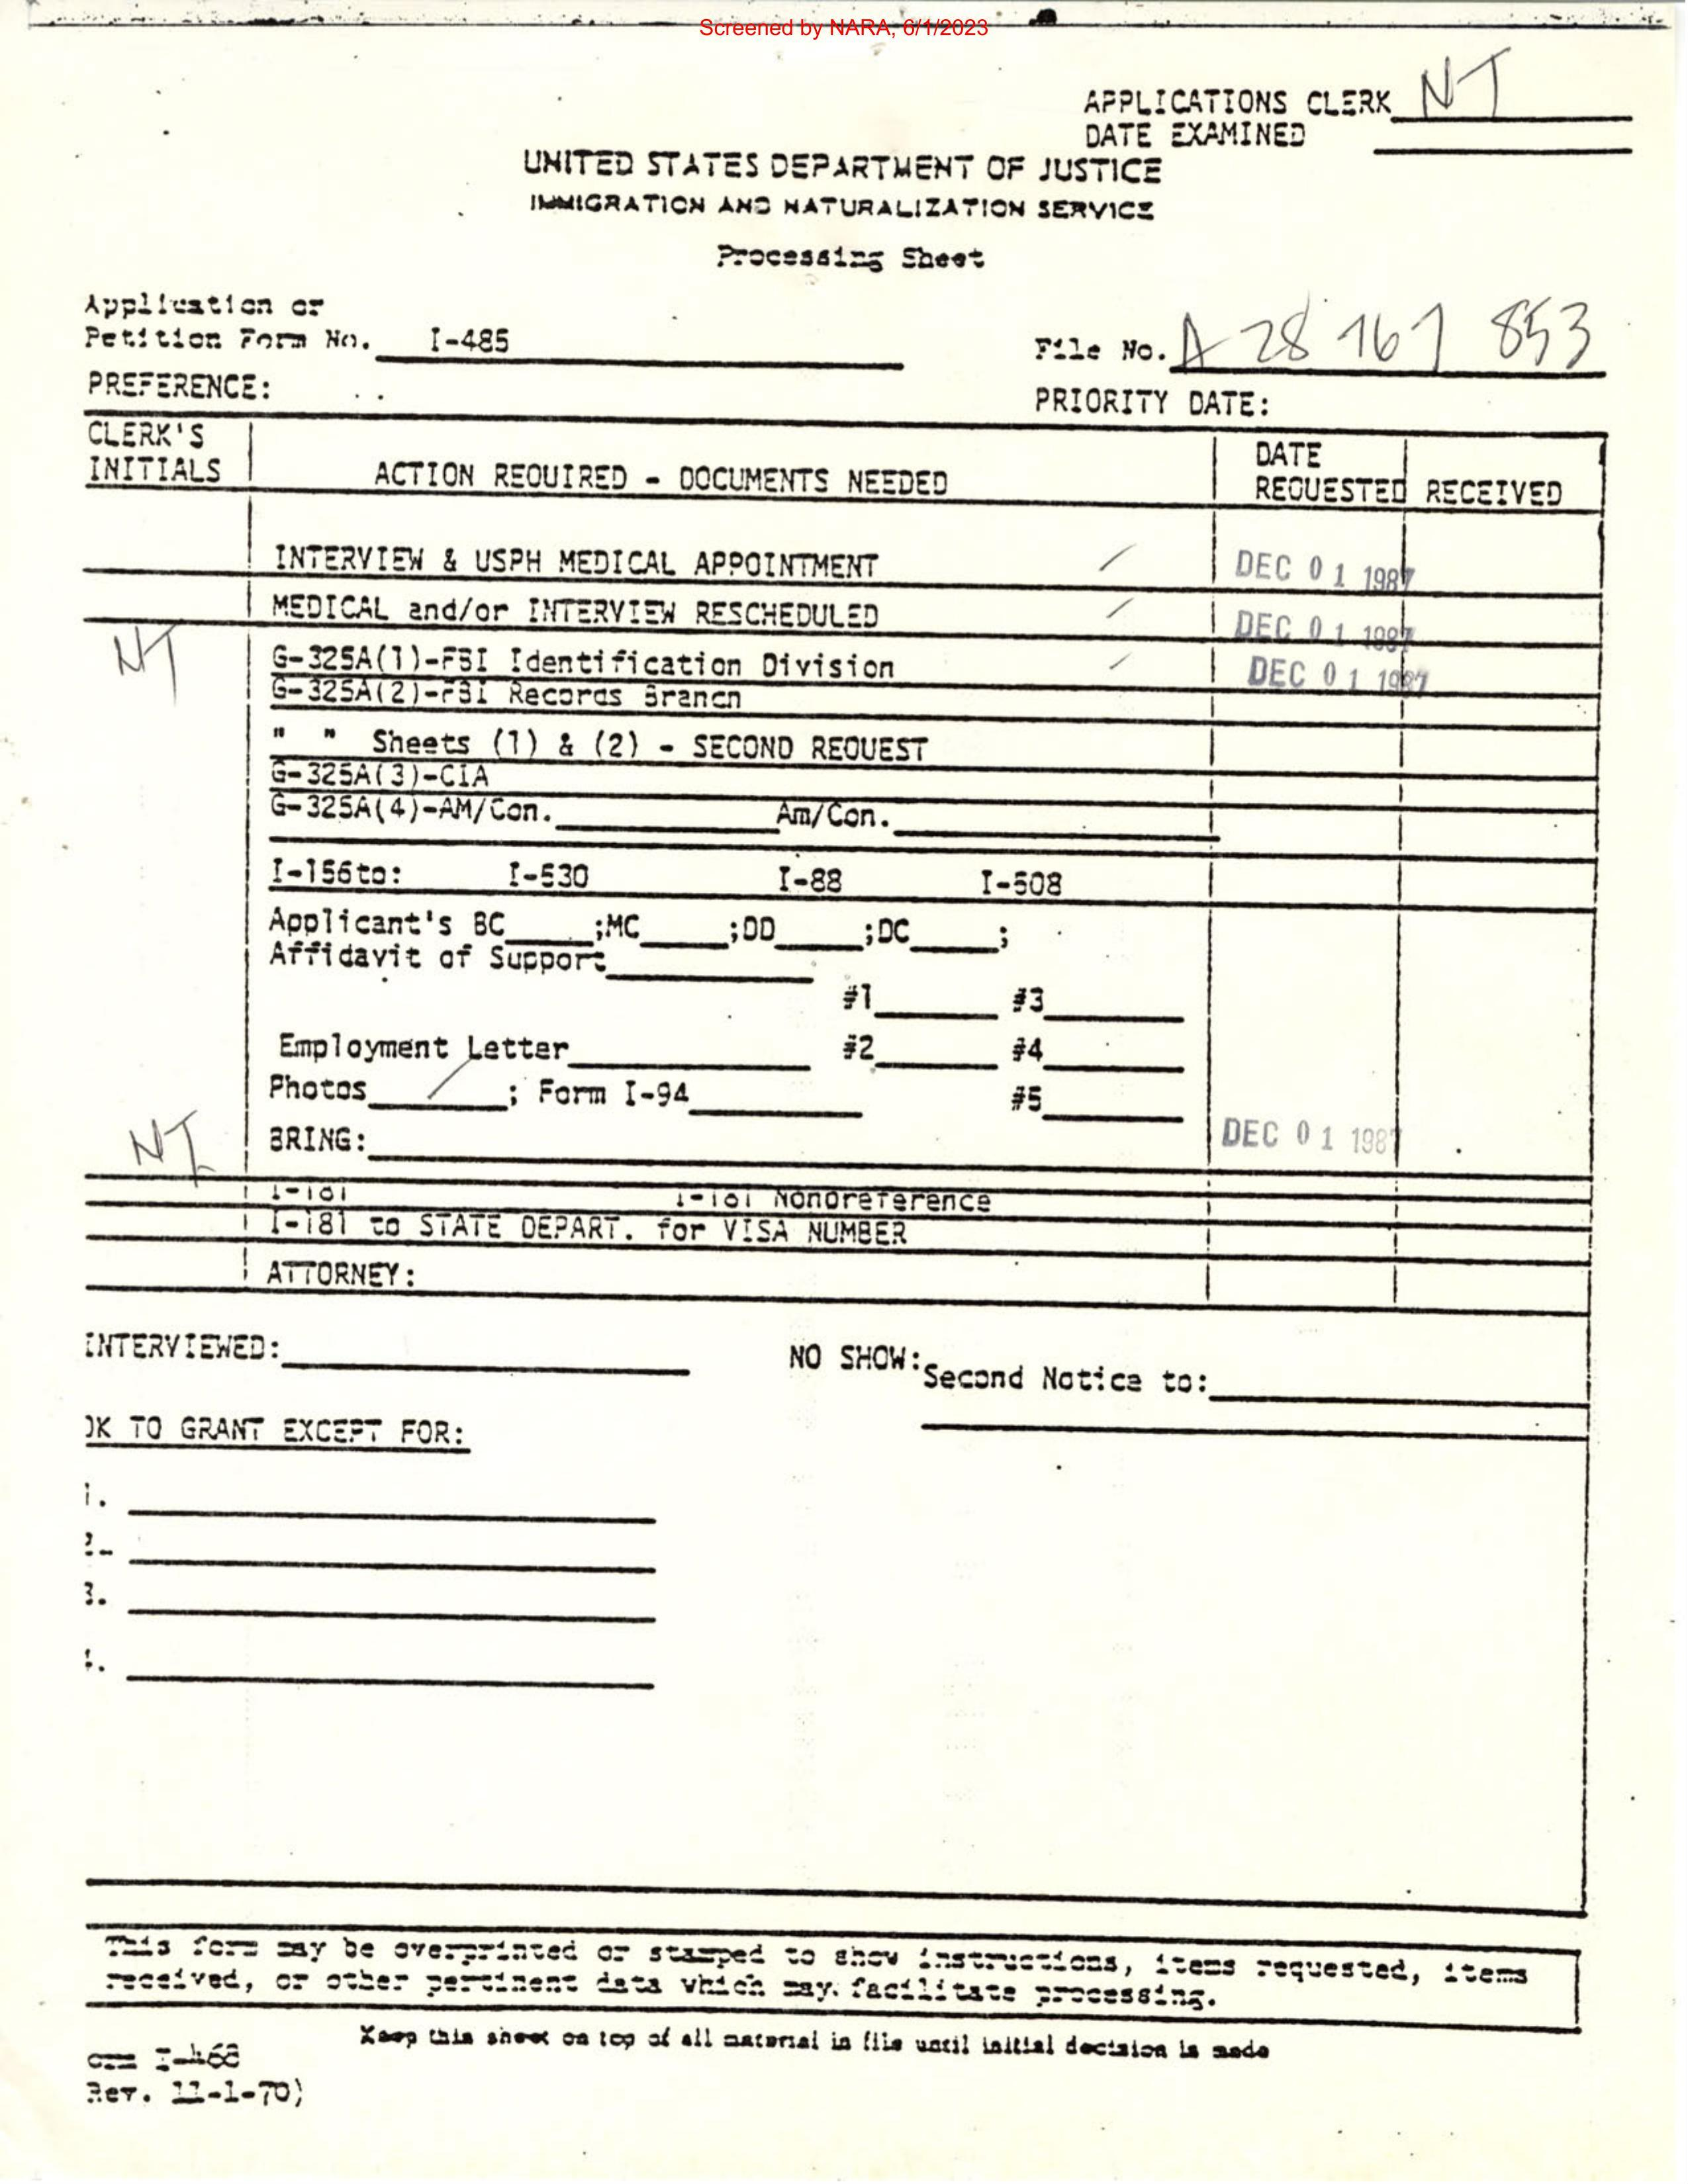 Screened by NARA, 6/1/2023
APPLICATIONS CLERK NT
DATE EXAMINED
UNITED STATES DEPARTMENT OF JUSTICE
IMMIGRATION AND NATURALIZATION SERVICE
Processing Sheet
Application or
Petition Form No. I-485
File No. A 28 767 853
PREFERENCE:
PRIORITY DATE:
CLERK'S INITIALS
ACTION REQUIRED - DOCUMENTS NEEDED
DATE REQUESTED RECEIVED
INTERVIEW & USPH MEDICAL APPOINTMENT / DEC 01 1987
MEDICAL and/or INTERVIEW RESCHEDULED / DEC 01 1987
NT G-325A(1)-FBI Identification Division / DEC 01 1987
G-325A(2)-FBI Records Branch
" " Sheets (1) & (2) - SECOND REQUEST
G-325A(3)-CIA
G-325A(4)-AM/Con. Am/Con.
I-156to: I-530 I-88 I-508
Applicant's BC ;MC ;DD ;DC ;
Affidavit of Support
#1 #3
Employment Letter #2 #4
Photos / ; Form I-94 #5
NT BRING: DEC 01 1987
I-181 I-181 Nonpreference
I-181 to STATE DEPART. for VISA NUMBER
ATTORNEY:
INTERVIEWED:
NO SHOW: Second Notice to:
OK TO GRANT EXCEPT FOR:
1.
2.
3.
4.
This form may be overprinted or stamped to show instructions, items requested, items
received, or other pertinent data which may facilitate processing.
Keep this sheet on top of all material in file until initial decision is made
orm I-468
Rev. 11-1-70)